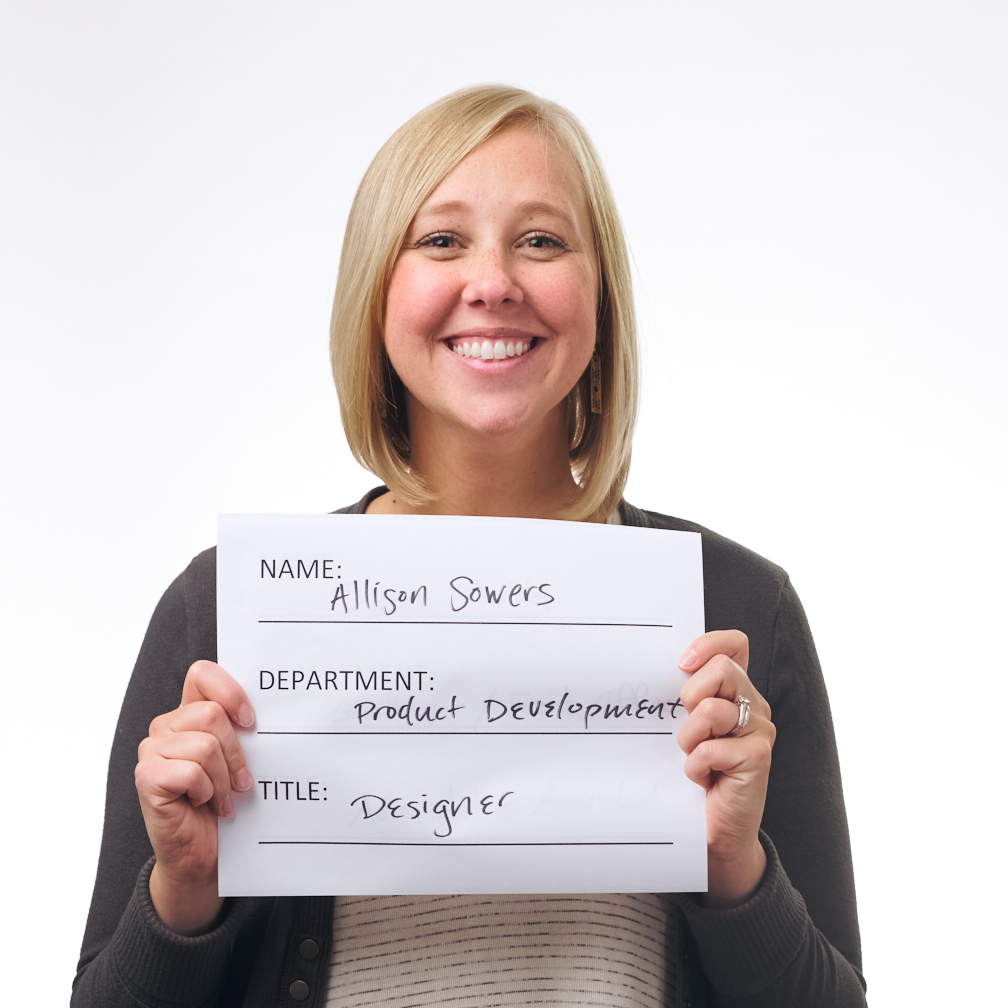 NAME:
Allison Sowers
DEPARTMENT:
Product Development
TITLE:
Designer